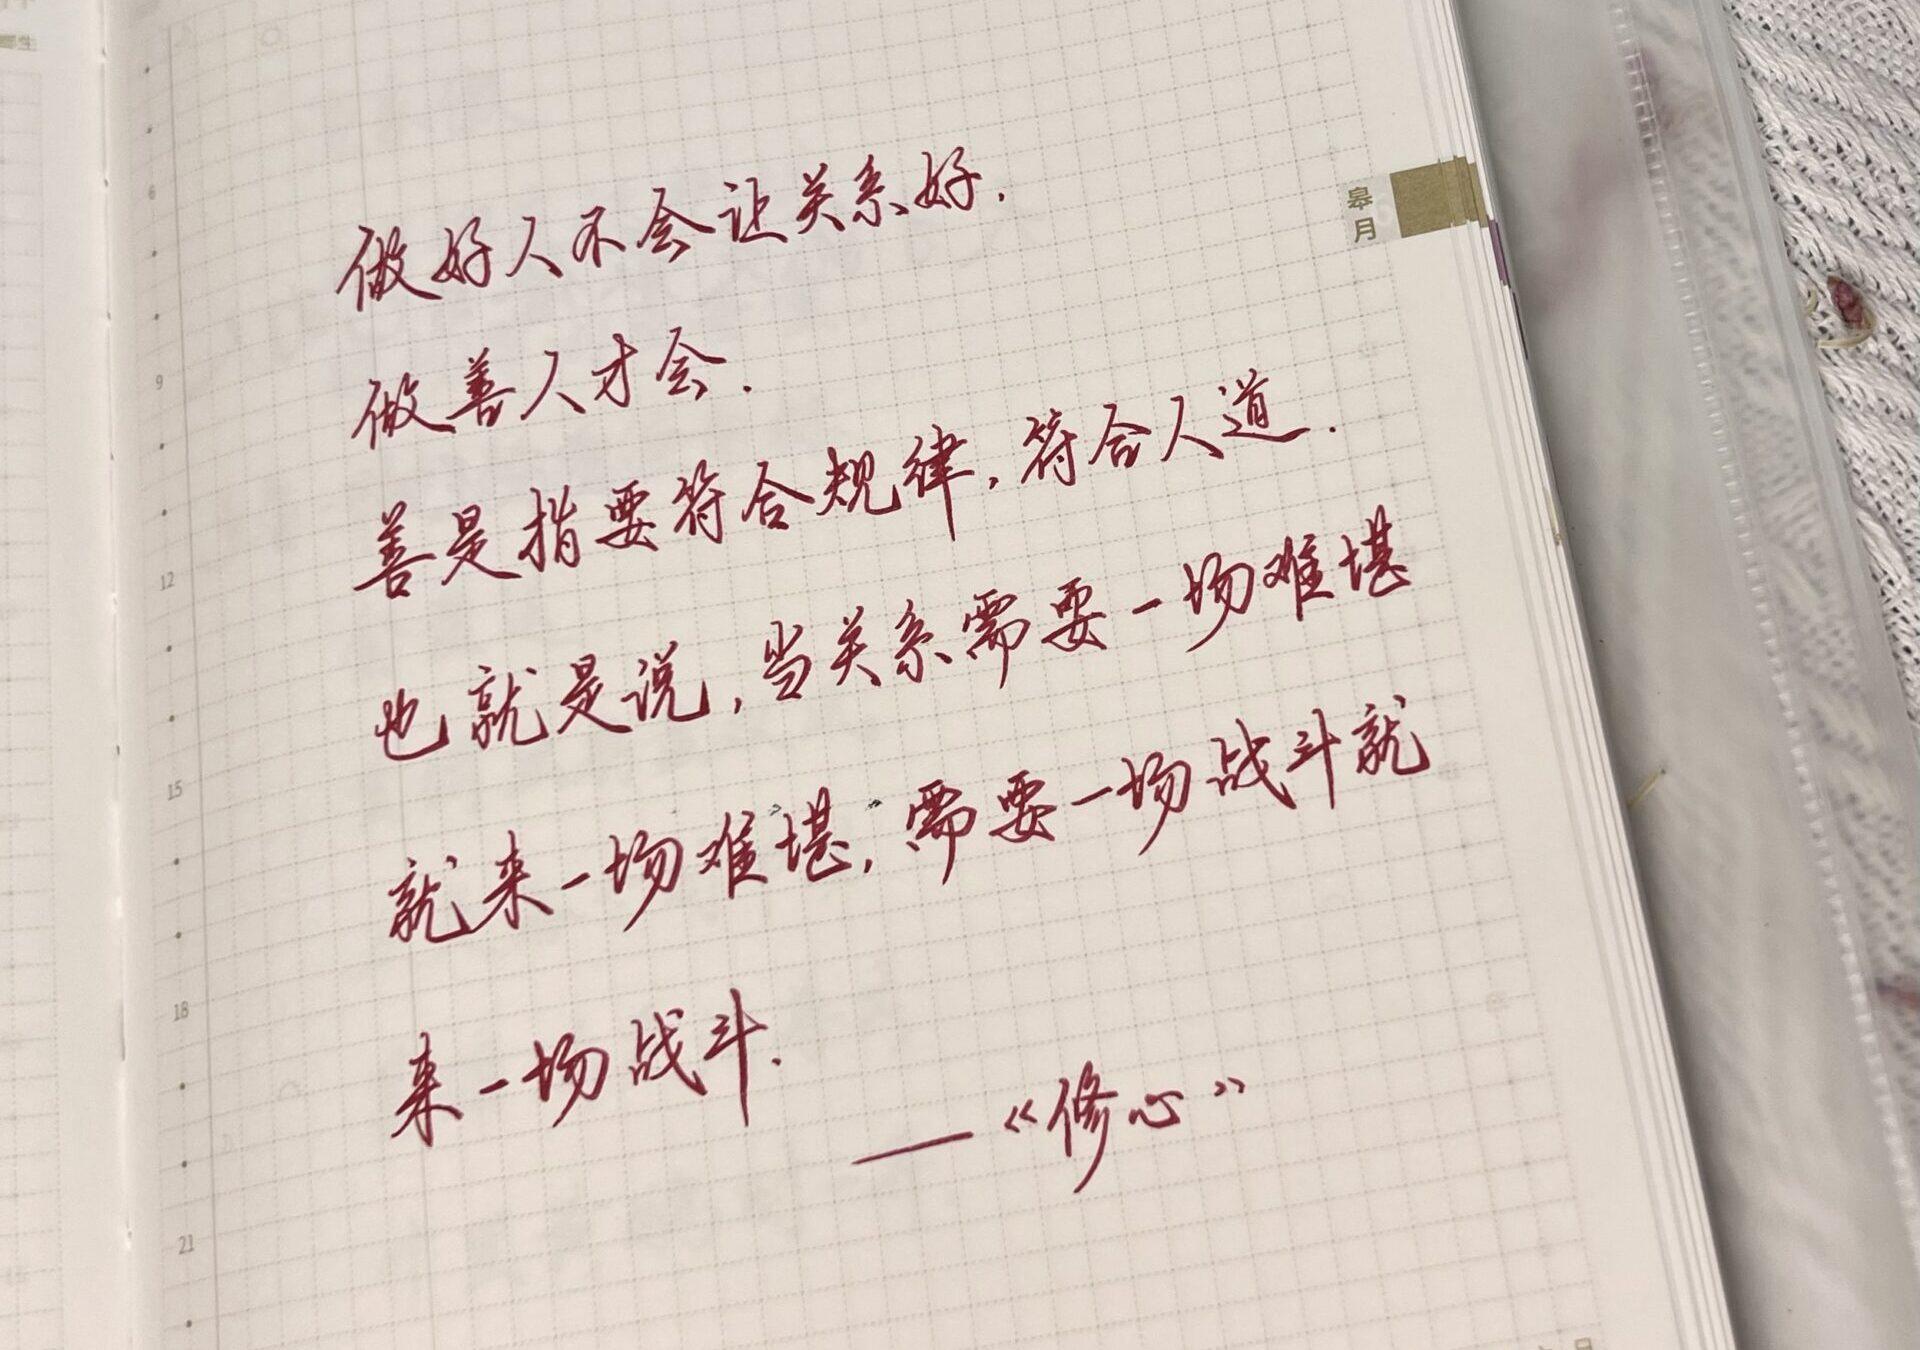 做好人不会让关系好.
做善人才会.
善是指要符合规律,符合人道.
也就是说,当关系需要一场难堪
就来一场难堪,需要一场战斗就
来一场战斗.
——《修心》
皋月
6
9
12
15
18
21